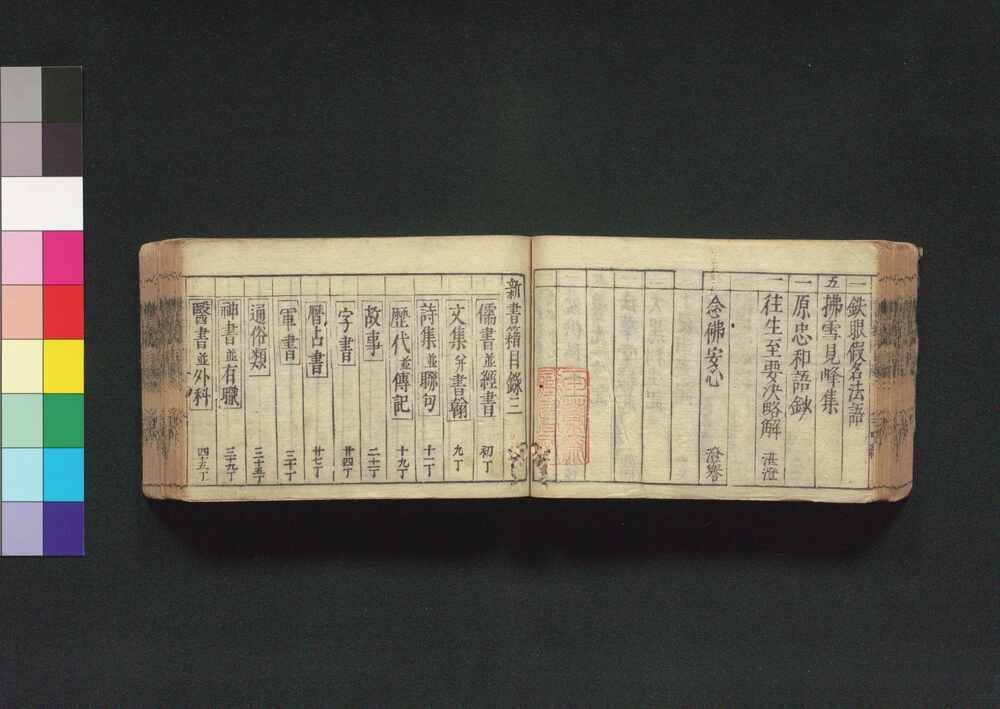 一 鉄眼假名法語
五 拂雪見峰集
一 原忠和語鈔
一 往生至要决略解 湛澄
念佛安心 澄誉
新書籍目録三
儒書並經書 初丁
文集并書翰 九丁
詩集並聯句 十一丁
歴代並傳記 十九丁
故事 二十丁
字書 廿四丁
暦占書 廿七丁
軍書 三十丁
通俗類 三十五丁
神書並有職 三十九丁
醫書並外科 四十五丁